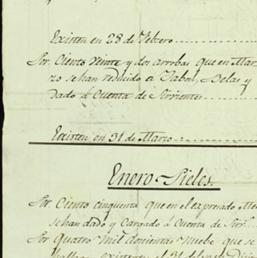 Existen en 28 de Febrero
Por Ciento Veinte y dos arrobas que en Mar
zo se han reducido a Jabol, Belas y
Dado á Cuenta de Sirvientes
Existen en 31 de Marzo
Enero Pieles.
Por Ciento cinquenta que en el expresado Mes
se han dado y Cargado á Cuenta de Sirv.
Por Quatro mil doscientas nuebe que se